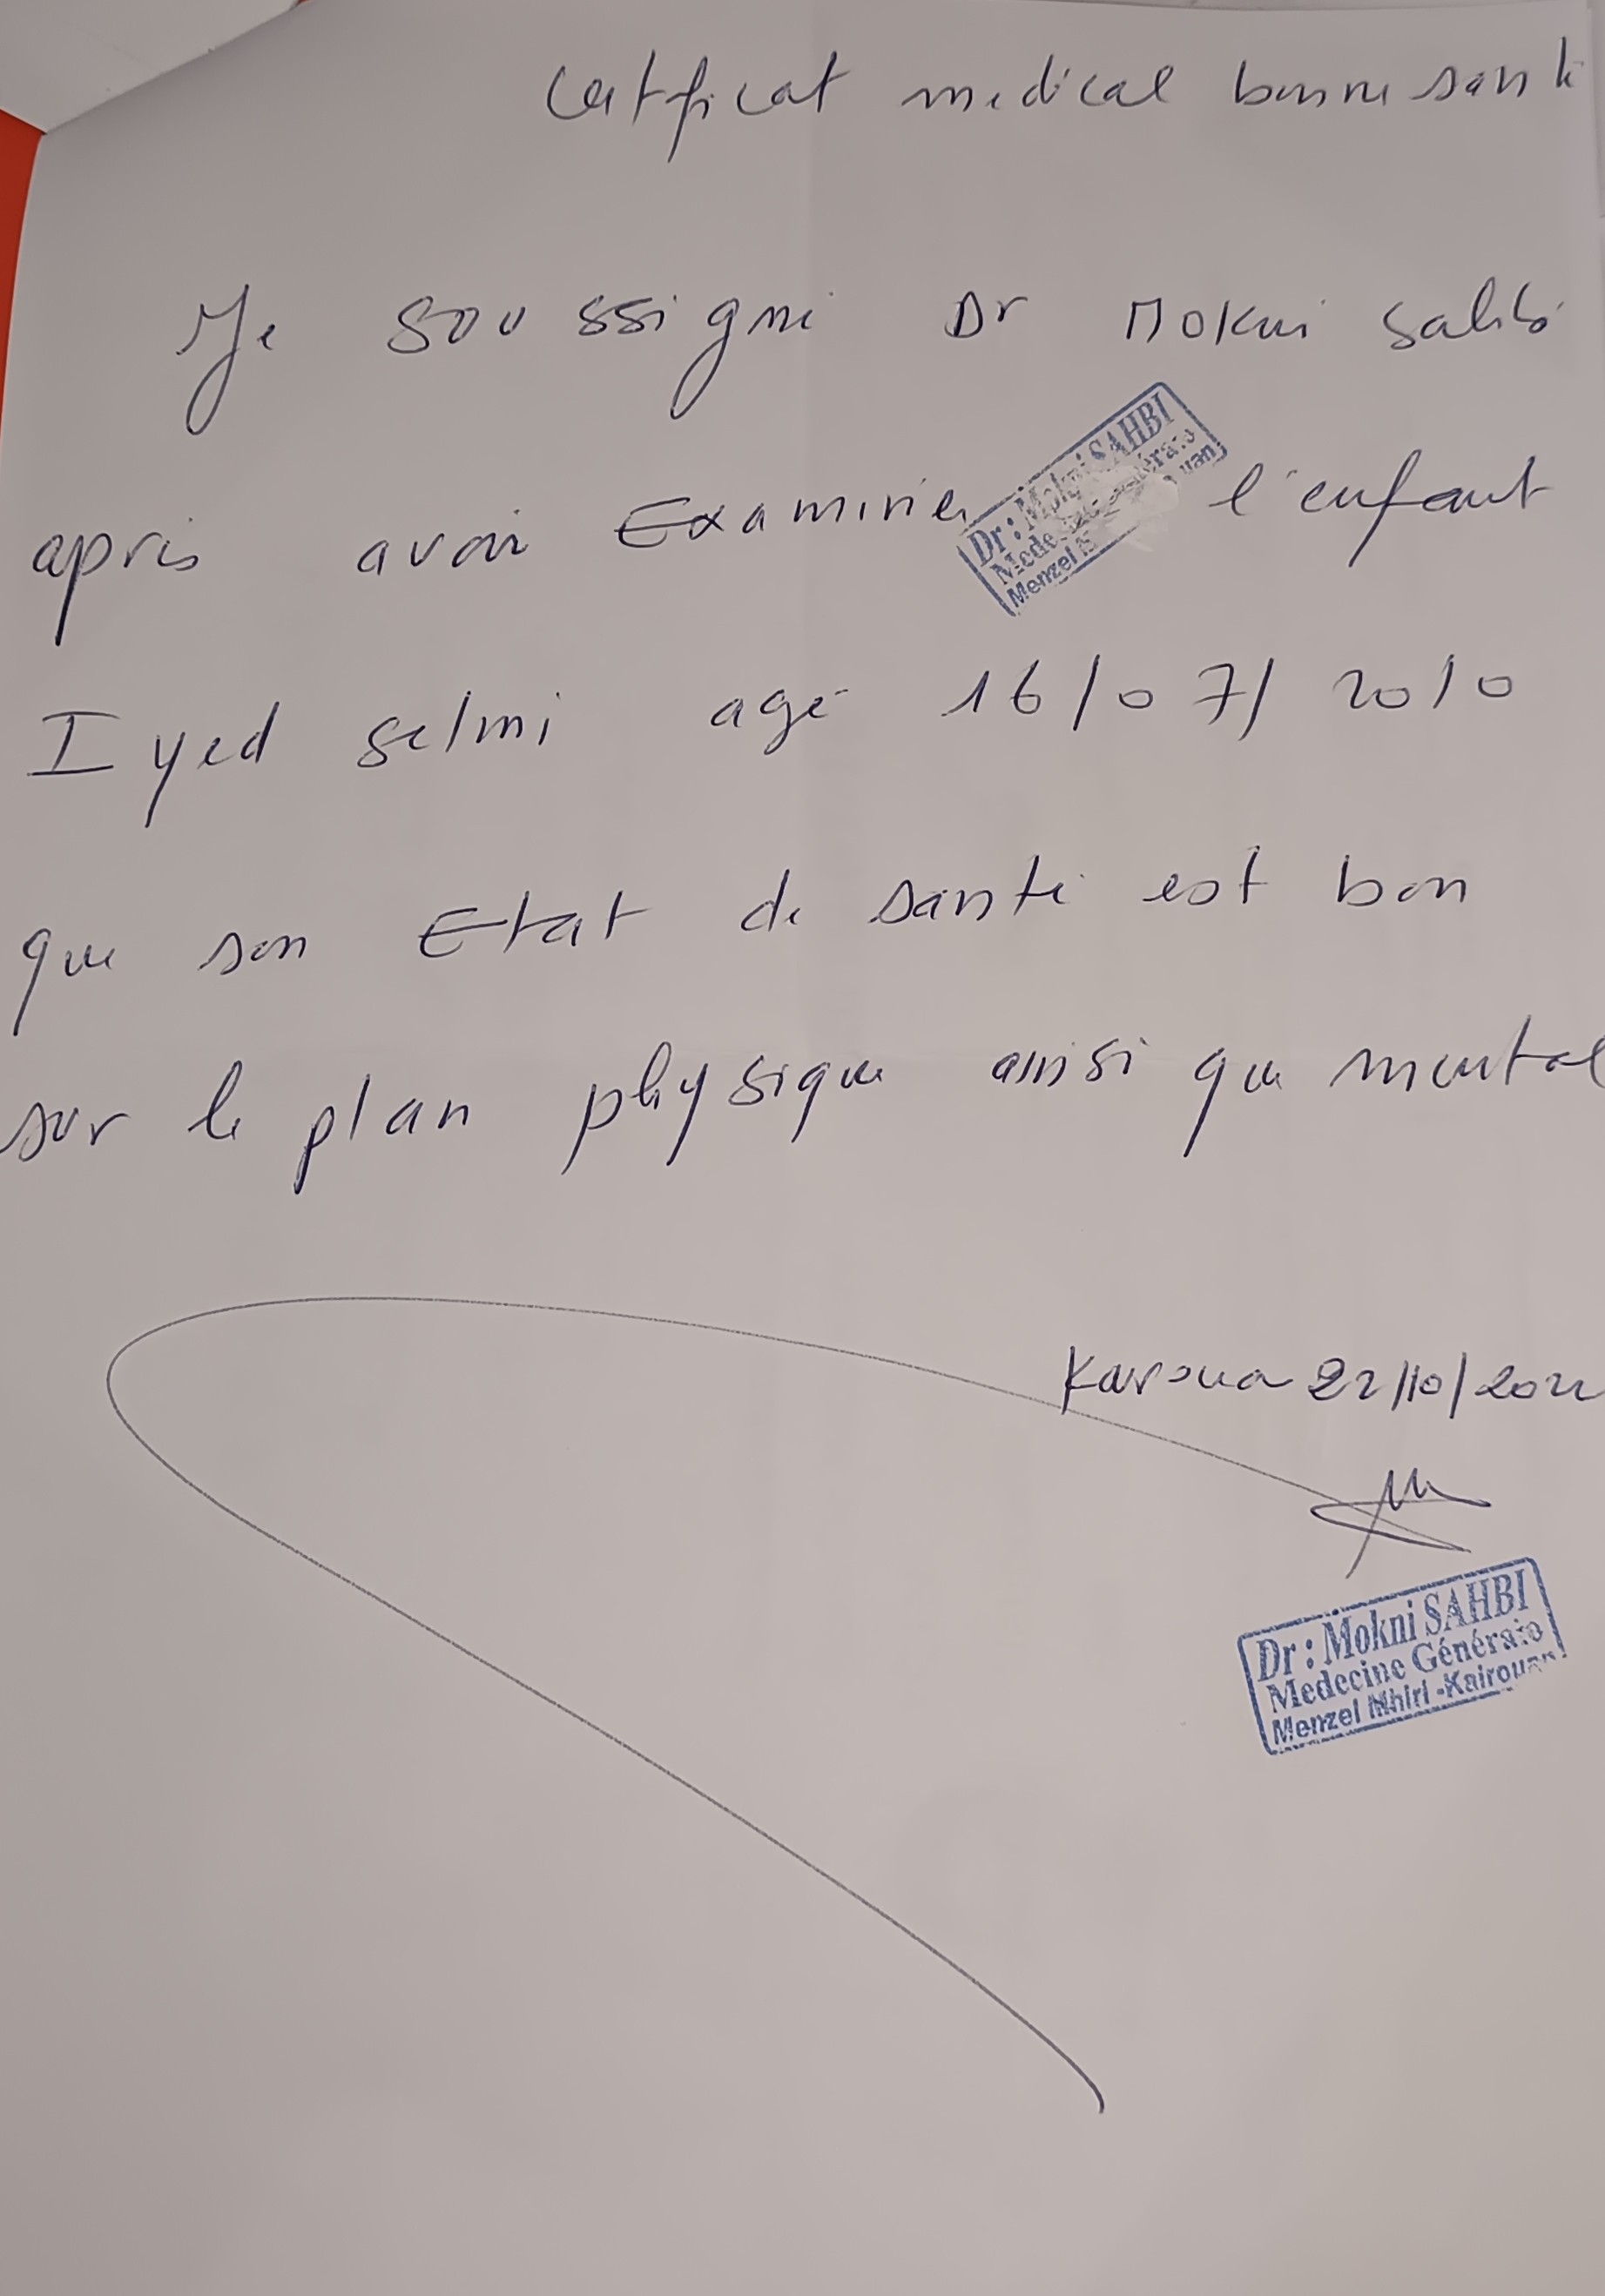 Certificat medical bonne santé
Je soussigné Dr Mokni Sahbi
après avoir Examiner l'enfant
Dr: Mokni SAHBI
Mede
Menzel
Iyed selmi agé 16/07/2010
que son Etat de santé est bon
sur le plan physique ainsi que mental
Karoua 22/10/2022
Dr: Mokni SAHBI
Medecine Générale
Menzel Mhiri-Kairouan